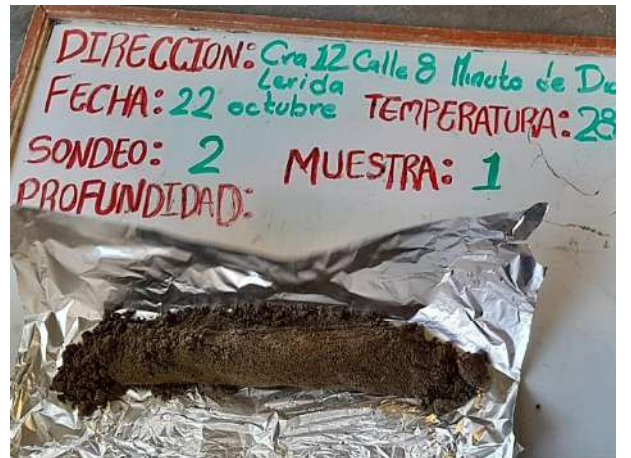 DIRECCION: Cra 12 Calle 8 Minuto de
Lerida
FECHA: 22 octubre TEMPERATURA: 28
SONDEO: 2 MUESTRA: 1
PROFUNDIDAD: